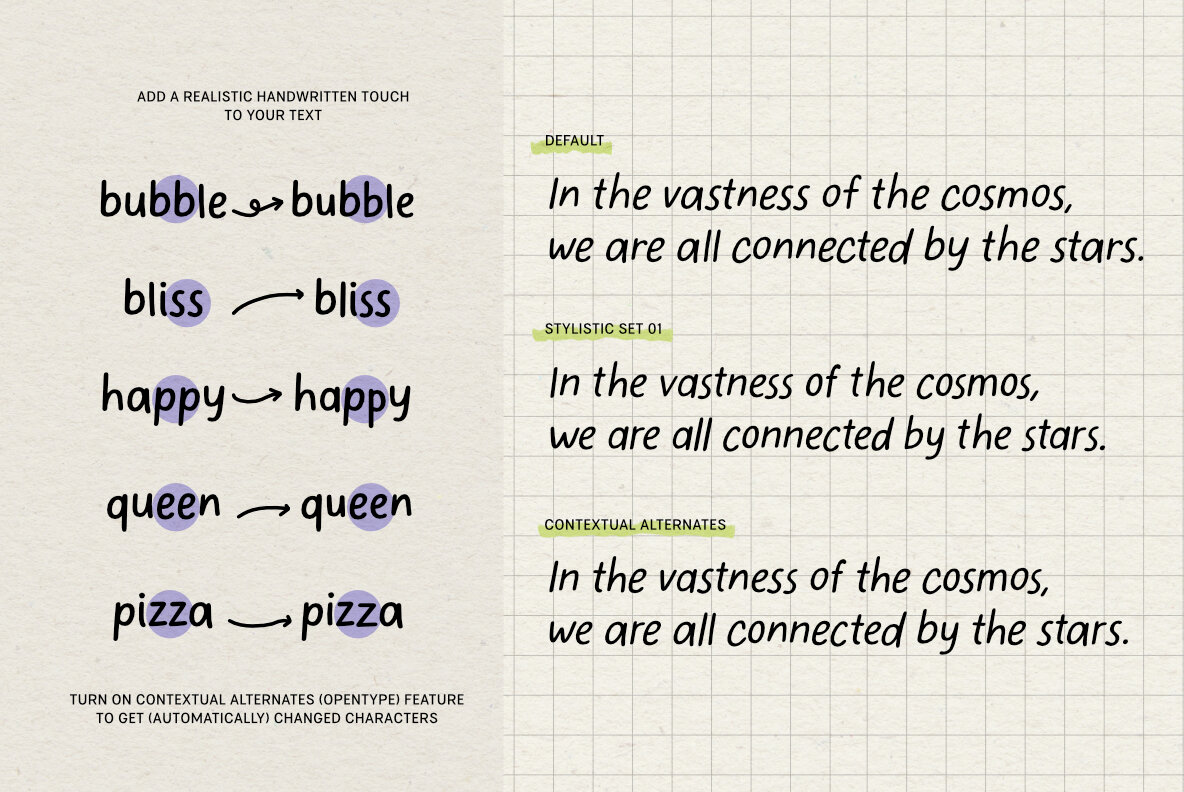 ADD A REALISTIC HANDWRITTEN TOUCH
TO YOUR TEXT
bubble bubble
bliss bliss
happy happy
queen queen
pizza pizza
TURN ON CONTEXTUAL ALTERNATES (OPENTYPE) FEATURE
TO GET (AUTOMATICALLY) CHANGED CHARACTERS
DEFAULT
In the vastness of the cosmos,
we are all connected by the stars.
STYLISTIC SET 01
In the vastness of the cosmos,
we are all connected by the stars.
CONTEXTUAL ALTERNATES
In the vastness of the cosmos,
we are all connected by the stars.